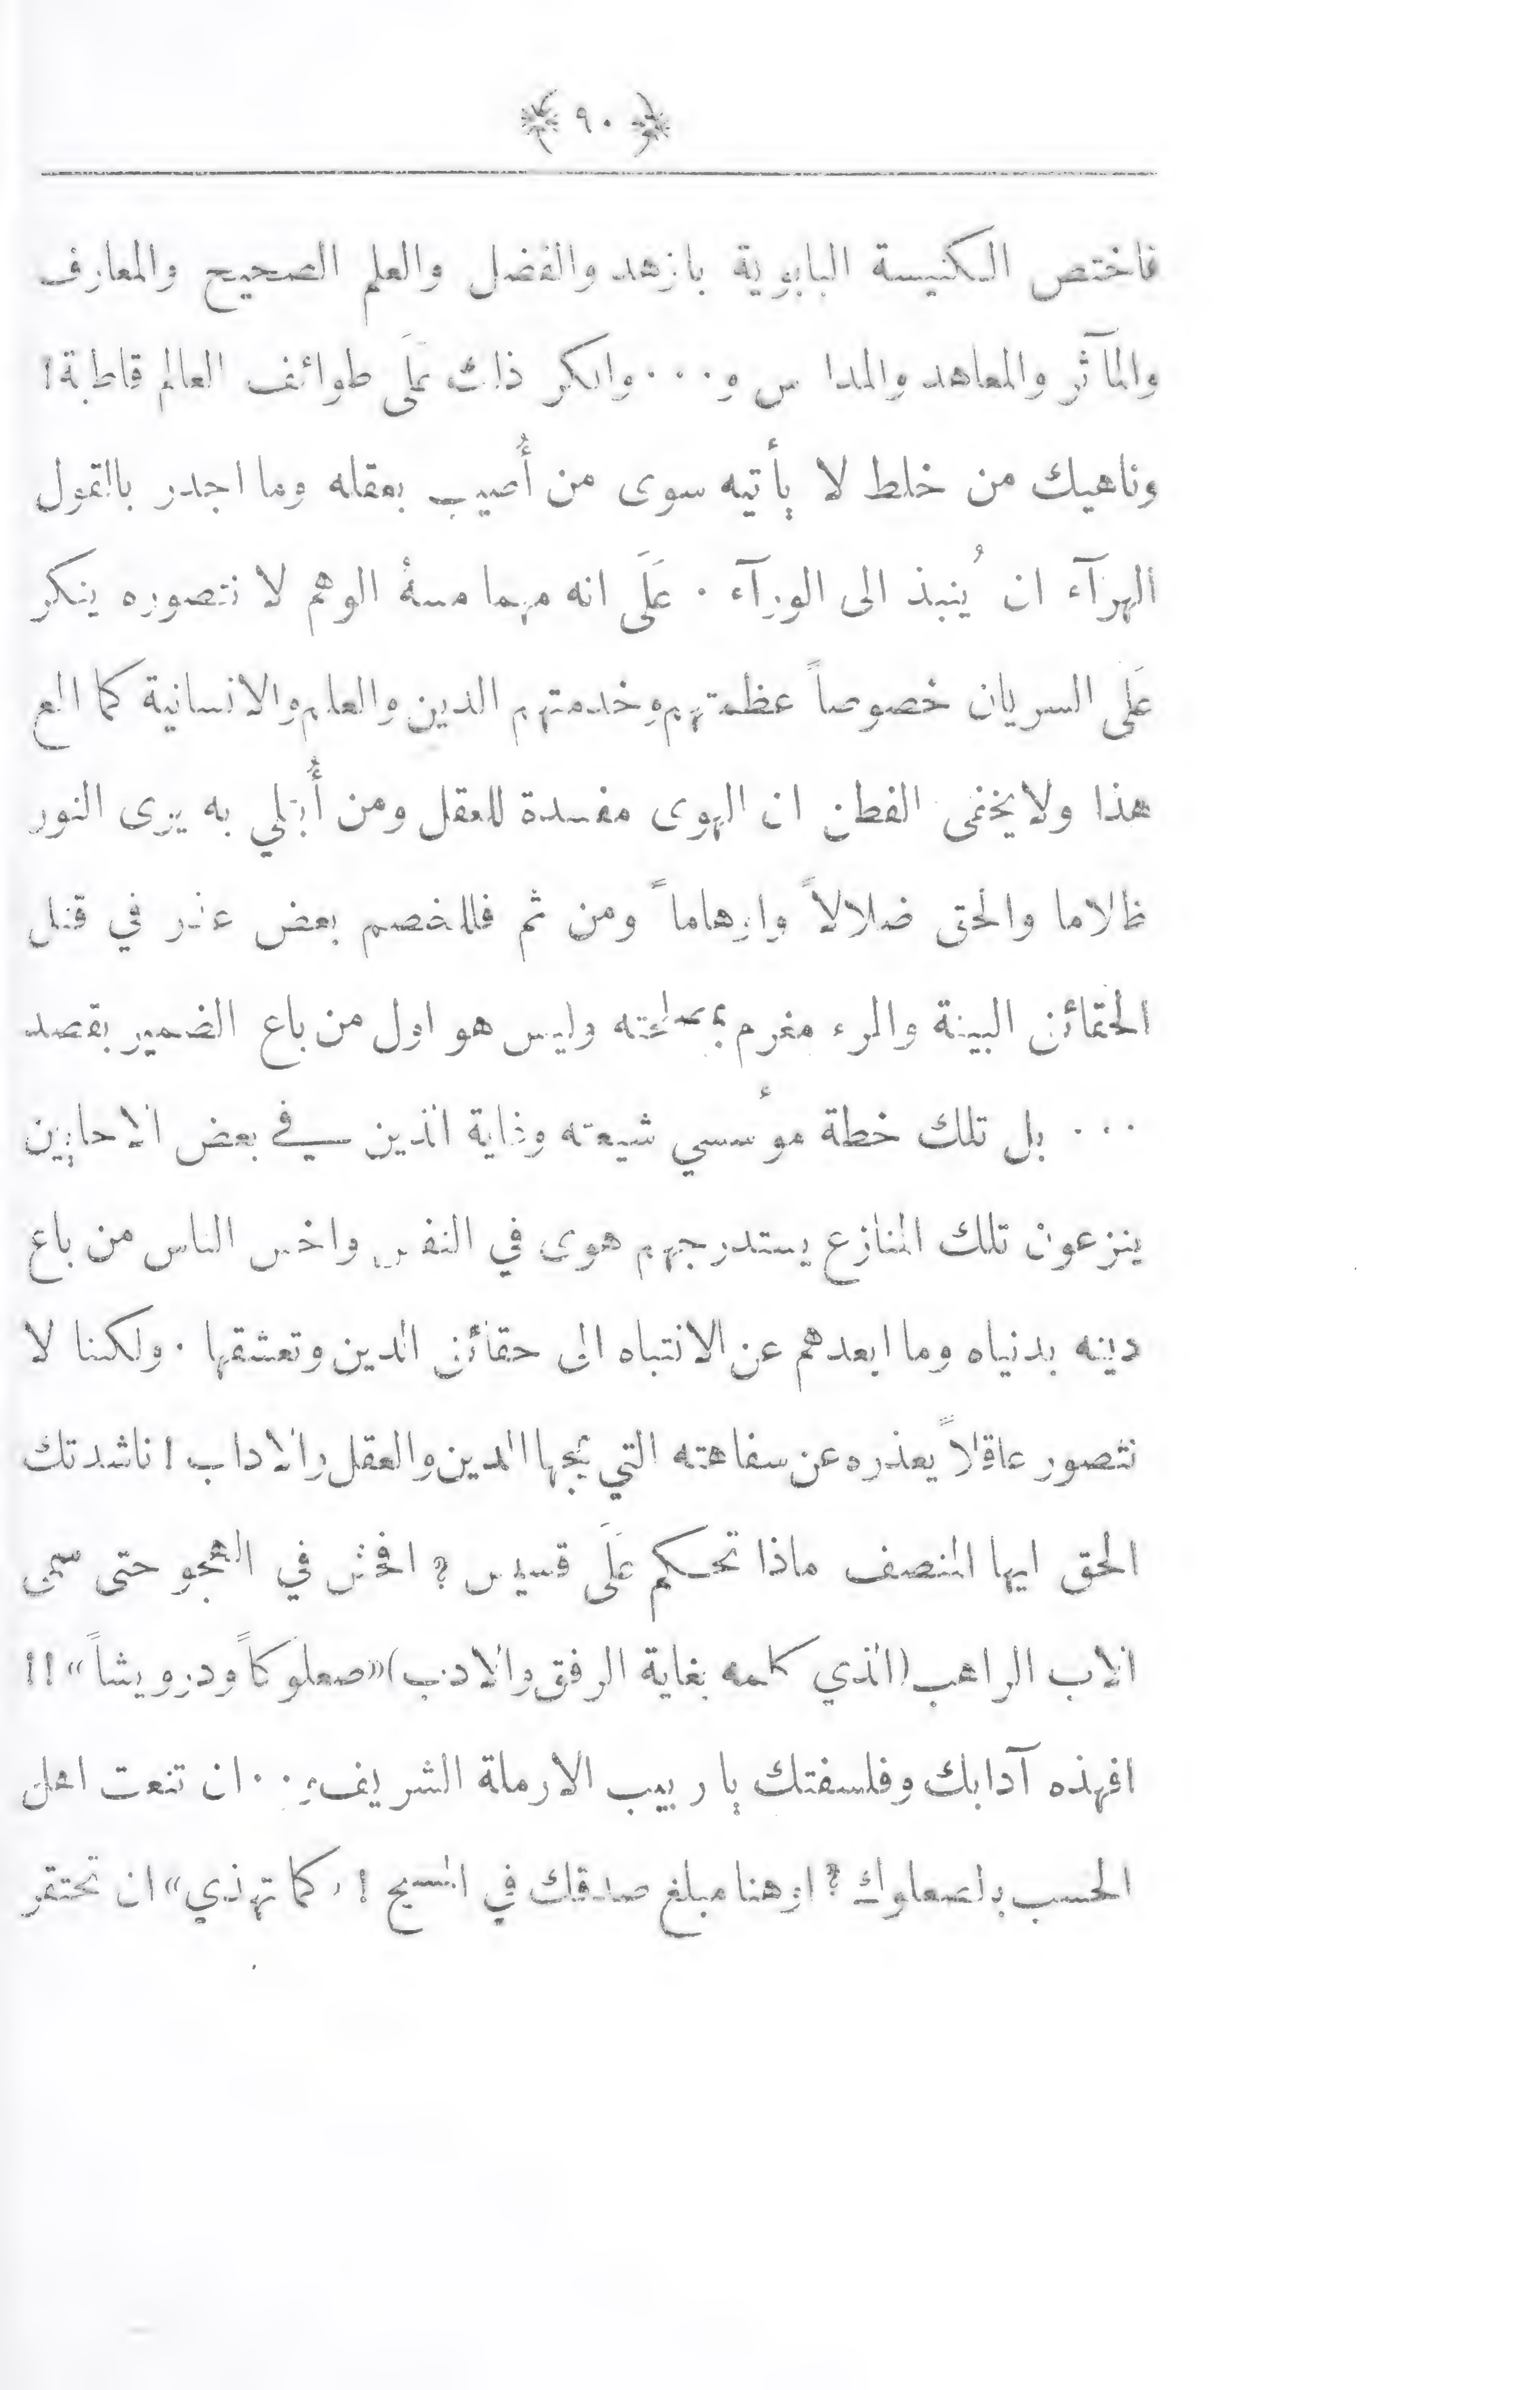 ﴿ ٩٠ ﴾
فاختص الكنيسة البابوية بالزهد والفضل والعلم الصحيح والمعارف
والمآثر والمعاهد والمدارس و٠٠٠وانكر ذلك عَلَى طوائف العالم قاطبة!
وناهيك من خلط لا يأتيه سوى من أُصيب بعقله وما اجدر بالقول
الهرآء ان يُنبذ الى الورآء ٠ عَلَى انه مهما مسهُ الوهم لا نتصوره ينكر
عَلَى السريان خصوصاً عظمتهم وخدمتهم الدين والعلم والانسانية كما المع
هذا ولا يخفى الفطن ان الهوى مفسدة للعقل ومن أُبتلي به يرى النور
ظلاما والحق ضلالاً واوهاماً ومن ثم فللخصم بعض عذر في قتل
الحقائق البينة والمرء مغرم بمصلحته وليس هو اول من باع الضمير بقصد
٠٠٠ بل تلك خطة مؤسسي شيعته وغاية الذين في بعض الاحايين
ينزعون تلك المنازع يستدرجهم هوى في النفس واخس الناس من باع
دينه بدنياه وما ابعدهم عن الانتباه الى حقائق الدين وتعشقها ٠ ولكننا لا
نتصور عاقلاً يعذره عن سفاهته التي يمجها الدين والعقل والاداب ! ناشدتك
الحق ايها المنصف ماذا تحكم عَلَى قسيس ؟ افحش في الهجو حتى سمى
الاب الراهب (الذي كلمه بغاية الرفق والادب) «صعلوكاً ودرويشاً» !!
افهذه آدابك وفلسفتك يا ربيب الارملة الشريف ٠٠ ان تنعت اهل
الحسب بالصعلوك ؟ اوهنا مبلغ صدقك في المسيح ! «كما تهذي» ان تحتقر